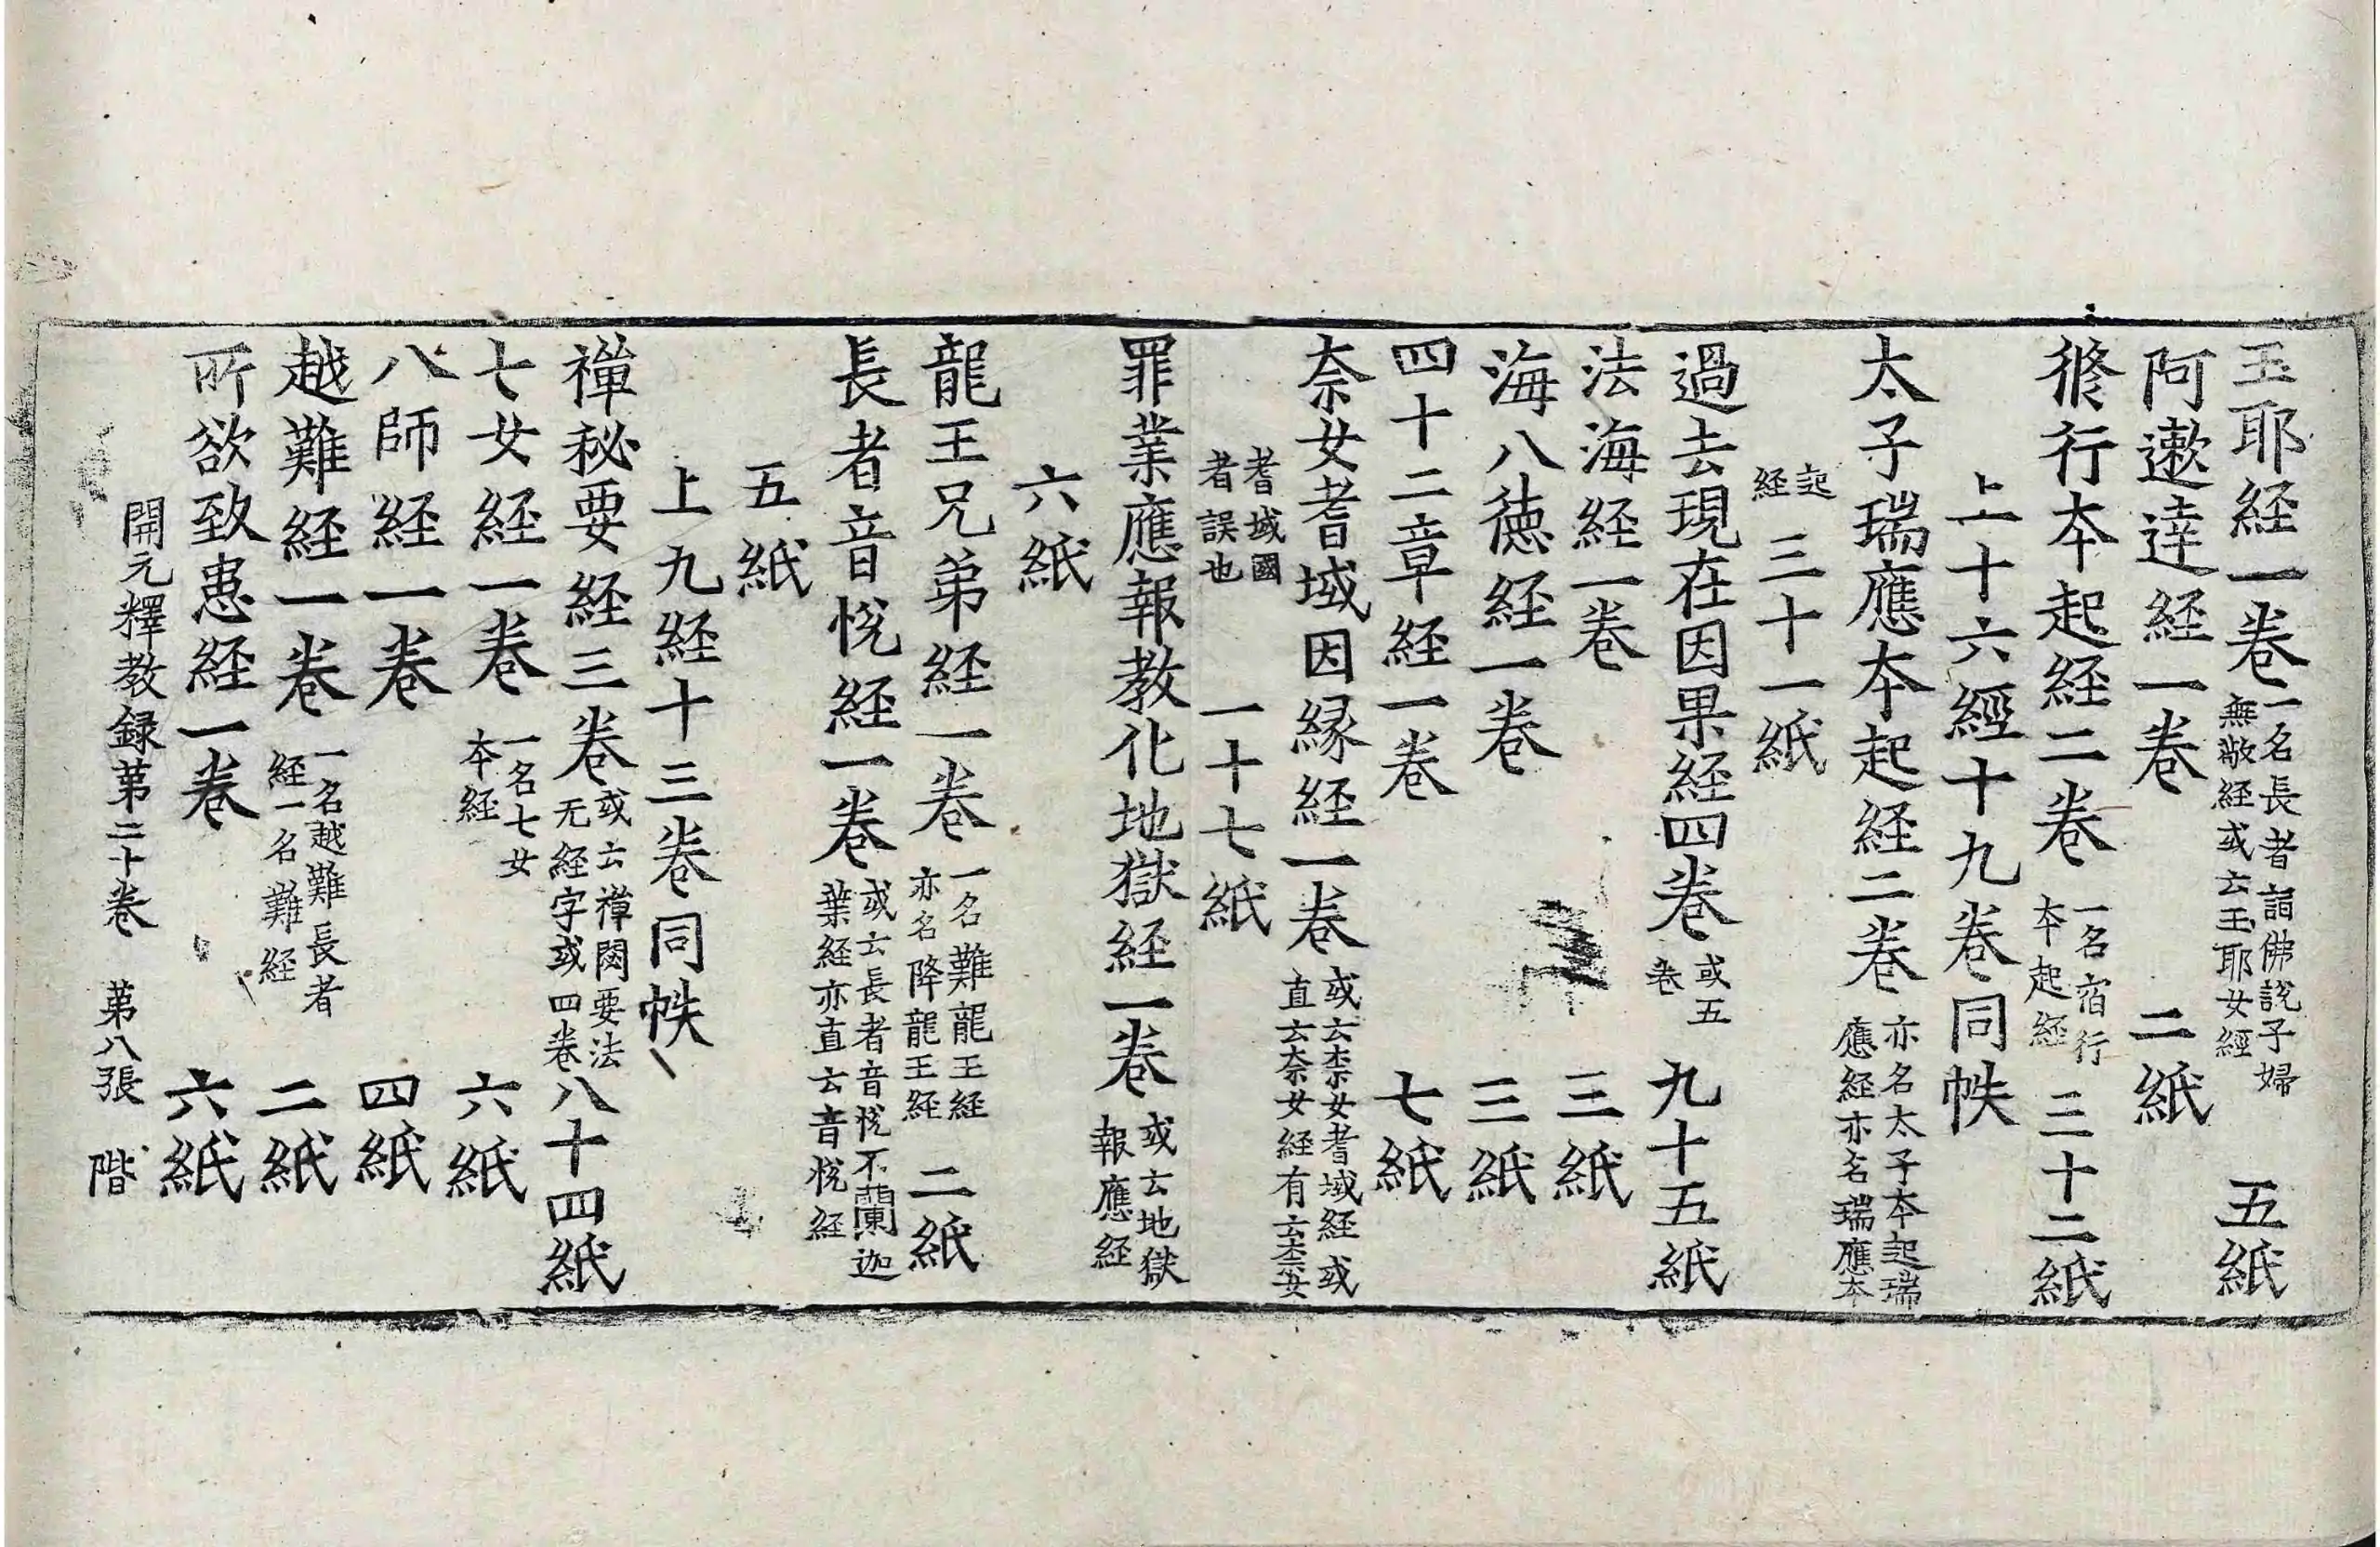 玉耶経一卷一名長者詣佛說子婦無敬経或云玉耶女經 五紙
阿遬達経一卷 二紙
脩行本起経二卷一名宿行本起経 三十二紙
上十六經十九卷同帙
太子瑞應本起経二卷亦名太子本起瑞應経亦名瑞應本
起経 三十一紙
過去現在因果経四卷或五卷 九十五紙
法海経一卷 三紙
海八德経一卷 三紙
四十二章経一卷 七紙
奈女耆域因縁経一卷或云柰女耆域経或直云奈女経有云柰女
耆域國者誤也 一十七紙
罪業應報教化地獄経一卷或云地獄報應経
六紙
龍王兄弟経一卷一名難龍王経亦名降龍王経 二紙
長者音恱経一卷或云長者音恱不蘭迦葉経亦直云音恱経
五紙
上九経十三卷同帙
禅秘要経三卷或云禅閟要法无経字或四卷 八十四紙
七女経一卷一名七女本経 六紙
八師経一卷 四紙
越難経一卷一名越難長者経一名難経 二紙
所欲致患経一卷 六紙
開元釋教録苐二十卷 苐八張 階